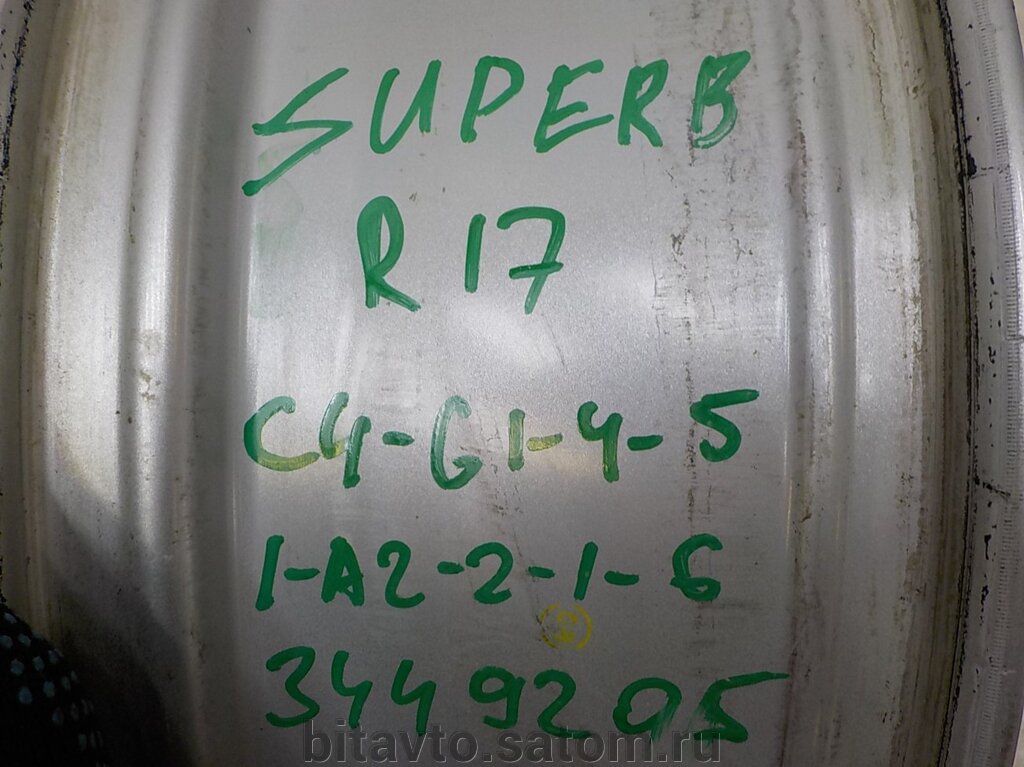 SUPERB
R 17
C4-G1-4-5
1-A2-2-1-6
3449205
bitavto.satom.ru